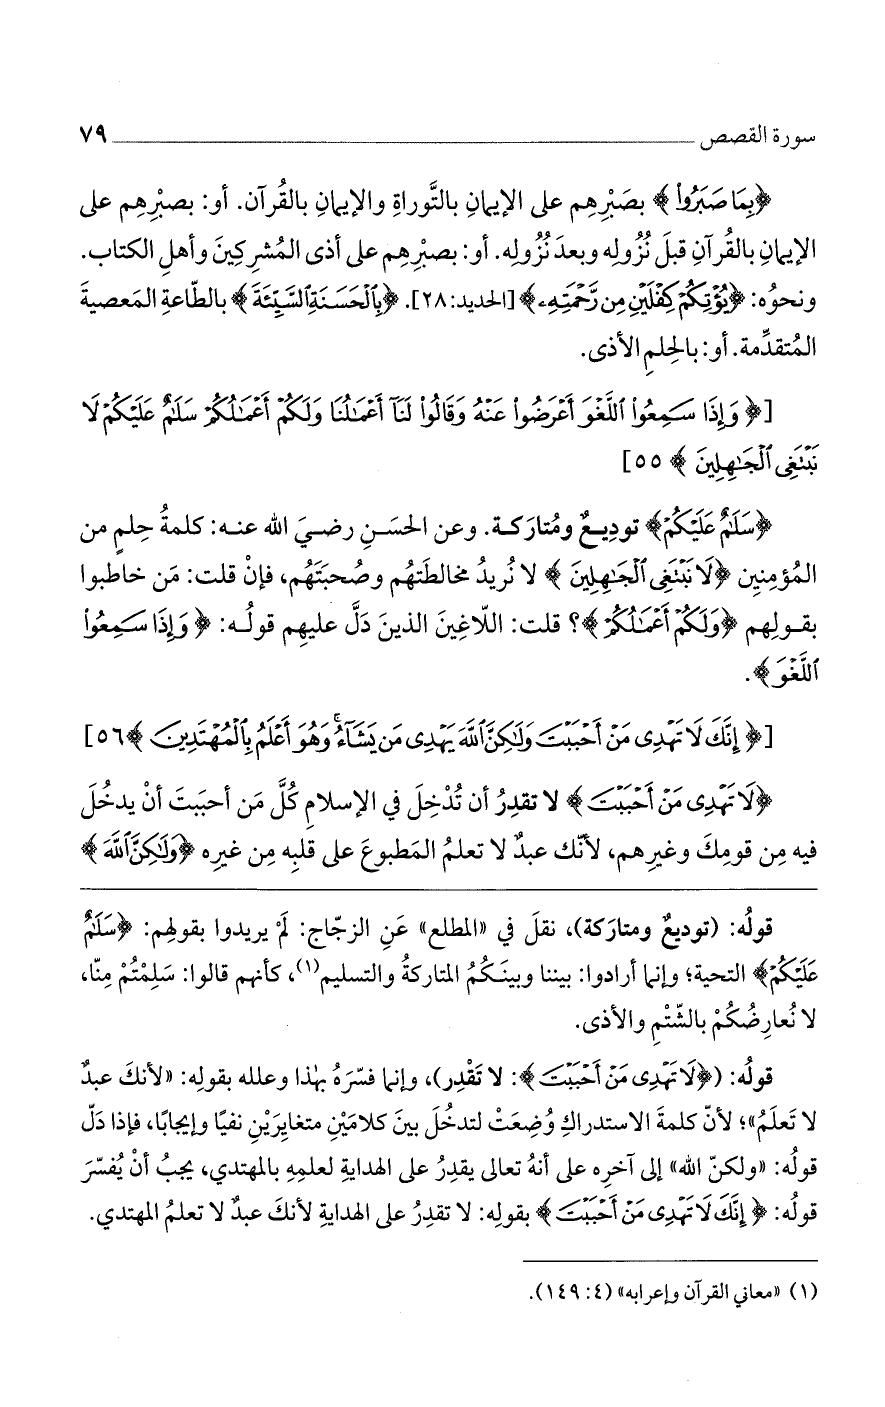 سورة القصص ٧٩
﴿بِمَا صَبَرُوا۟﴾ بصَبْرِهِم على الإيمانِ بالتَّوراةِ والإيمانِ بالقُرآن. أو: بصبْرِهِم على
الإيمانِ بالقُرآن قبلَ نُزُولِه وبعدَ نُزُولِه. أو: بصبْرِهِم على أذى المُشرِكِينَ وأهلِ الكتاب.
ونحوُه: ﴿يُؤْتِكُمْ كِفْلَيْنِ مِن رَّحْمَتِهِۦ﴾ [الحديد:٢٨]. ﴿بِٱلْحَسَنَةِ ٱلسَّيِّئَةَ﴾ بالطّاعةِ المَعصيةَ
المُتقدِّمة. أو: بالحِلمِ الأذى.
[﴿وَإِذَا سَمِعُوا۟ ٱللَّغْوَ أَعْرَضُوا۟ عَنْهُ وَقَالُوا۟ لَنَآ أَعْمَٰلُنَا وَلَكُمْ أَعْمَٰلُكُمْ سَلَٰمٌ عَلَيْكُمْ لَا
نَبْتَغِى ٱلْجَٰهِلِينَ﴾ ٥٥]
﴿سَلَٰمٌ عَلَيْكُمْ﴾ توديعٌ ومُتارَكة. وعن الحسَنِ رضيَ الله عنه: كلمةُ حِلمٍ من
المُؤمنِين ﴿لَا نَبْتَغِى ٱلْجَٰهِلِينَ﴾ لا نُريدُ مخالطَتهُم وصُحبَتَهُم، فإنْ قلت: مَن خاطبوا
بقولِهم ﴿وَلَكُمْ أَعْمَٰلُكُمْ﴾؟ قلت: اللّاغِينَ الذينَ دَلَّ عليهِم قولُه: ﴿وَإِذَا سَمِعُوا۟
ٱللَّغْوَ﴾.
[﴿إِنَّكَ لَا تَهْدِى مَنْ أَحْبَبْتَ وَلَٰكِنَّ ٱللَّهَ يَهْدِى مَن يَشَآءُ ۚ وَهُوَ أَعْلَمُ بِٱلْمُهْتَدِينَ﴾ ٥٦]
﴿لَا تَهْدِى مَنْ أَحْبَبْتَ﴾ لا تقدِرُ أن تُدْخِلَ في الإسلامِ كُلَّ مَن أحبَبتَ أنْ يدخُلَ
فيه مِن قومِكَ وغيرِهم، لأنّك عبدٌ لا تعلمُ المَطبوعَ على قلبِه مِن غيرِه ﴿وَلَٰكِنَّ ٱللَّهَ﴾
قولُه: (توديعٌ ومتارَكة)، نقلَ في «المطلع» عَنِ الزجّاج: لمْ يريدوا بقولِهم: ﴿سَلَٰمٌ
عَلَيْكُمْ﴾ التحية؛ وإنما أرادوا: بيننا وبينَكُمُ المتاركةُ والتسليم(١)، كأنهم قالوا: سَلِمْتُمْ مِنّا،
لا نُعارِضُكُمْ بالشَّتْمِ والأذى.
قولُه: (﴿لَا تَهْدِى مَنْ أَحْبَبْتَ﴾: لا تَقْدِر)، وإنما فسّرَهُ بهٰذا وعلله بقولِه: «لأنكَ عبدٌ
لا تَعلَمُ»؛ لأنّ كلمةَ الاستدراكِ وُضِعَتْ لتدخُلَ بينَ كلامَيْنِ متغايرَيْنِ نفيًا وإيجابًا، فإذا دَلّ
قولُه: «ولكنّ الله» إلى آخرِه على أنهُ تعالى يقدِرُ على الهدايةِ لعلمِهِ بالمهتدي، يجبُ أنْ يُفسَّرَ
قولُه: ﴿إِنَّكَ لَا تَهْدِى مَنْ أَحْبَبْتَ﴾ بقولِه: لا تقدرُ على الهدايةِ لأنكَ عبدٌ لا تعلمُ المهتدي.
(١) «معاني القرآن وإعرابه» (٤: ١٤٩).